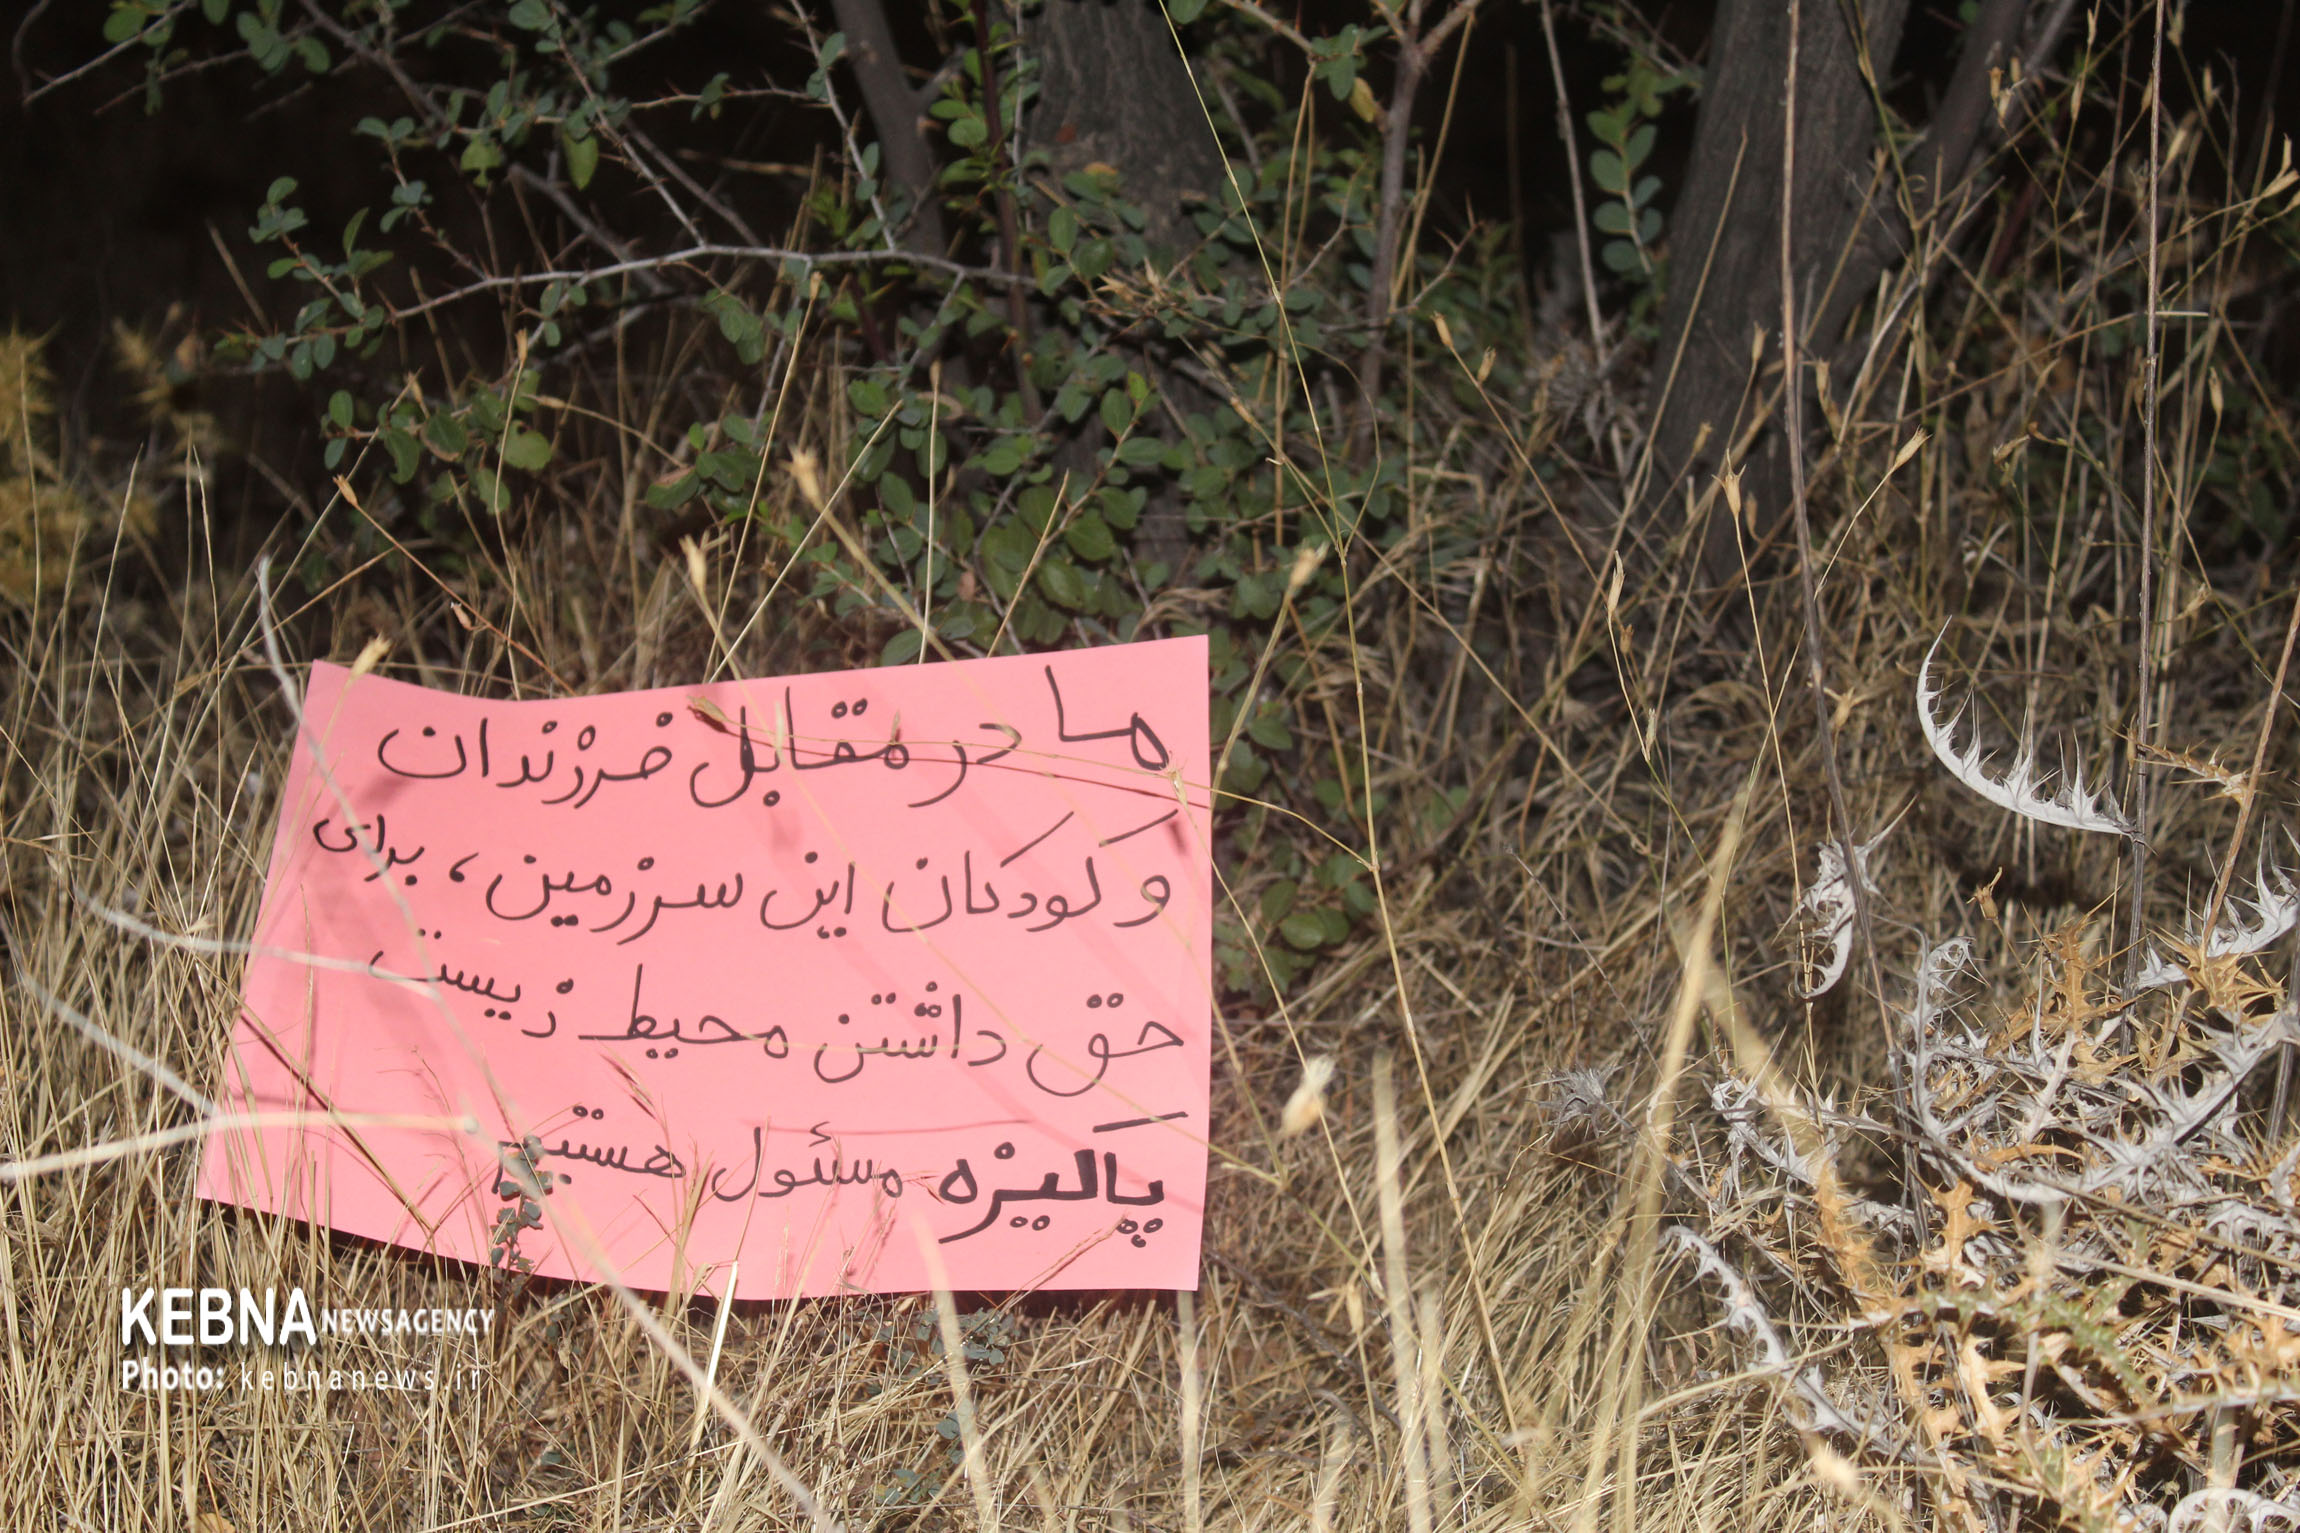 ما در مقابل فرزندان
و کودکان این سرزمین، برای
حق داشتن محیط زیست
پاکیزه مسئول هستیم
KEBNA NEWSAGENCY
Photo: kebnanews.ir